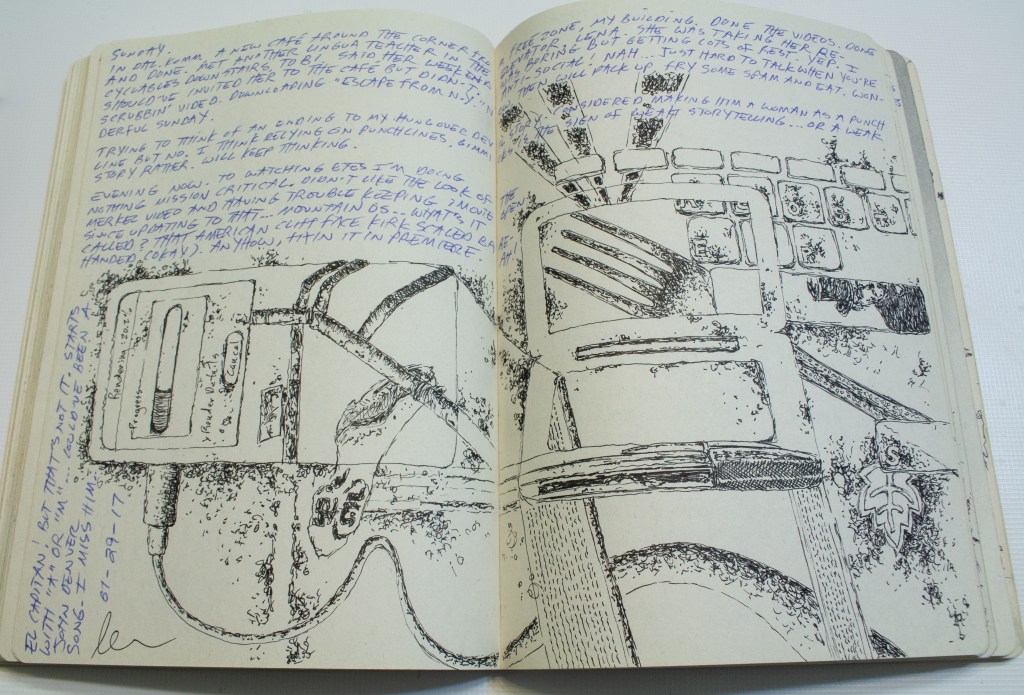 SUNDAY.
IN DAL.KOMM. A NEW CAFÉ AROUND THE CORNER.
AND DONE. MET ANOTHER LINGUA TEACHER IN THE
CYCLABLES DOWNSTAIRS TO B1. SAID HER WEEKEND
SHOULD'VE INVITED HER TO THE CAFÉ BUT DIDN'T.
SCRUBBIN' VIDEO. DOWNLOADING "ESCAPE FROM N.Y."
DERFUL SUNDAY.
TRYING TO THINK OF AN ENDING TO MY HUNGOVER
LINE BUT NO. I THINK RELYING ON PUNCHLINES,
STORY RATHER. WILL KEEP THINKING.
EVENING NOW. TO WATCHING ETES I'M DOING
NOTHING MISSION CRITICAL. DIDN'T LIKE THE LOOK OF
MERKEL VIDEO AND HAVING TROUBLE KEEPING IMOVIE
SINCE UPDATING TO THAT... MOUNTAIN OS... WHAT'S IT
CALLED? THAT AMERICAN CLIFF FACE KIRK SCALED BA
HANDED (OKAY). ANYHOW, HAIN IT IN PREMIERE
EL CAPITAN! BUT THAT'S NOT IT. STARTS
WITH "A" OR "M"... COULD'VE BEEN A
JOHN DENVER
SONG. I MISS HIM.
01-29-17
Rendering
Progress
Render Details
Cancel
FREE ZONE, MY BUILDING. DONE THE VIDEOS. DONE
ELEVATOR, LENA. SHE WAS TAKING HER RE-
WAS BORING BUT GETTING LOTS OF REST. YEP. I
ANTI-SOCIAL! NAH... JUST HARD TO TALK WHEN YOU'RE
THEN WILL PACK UP, FRY SOME SPAM AND EAT. WON-
CONSIDERED MAKING HIM A WOMAN AS A PUNCH
THE SIGN OF WEAK STORYTELLING... OR A WEAK
THE